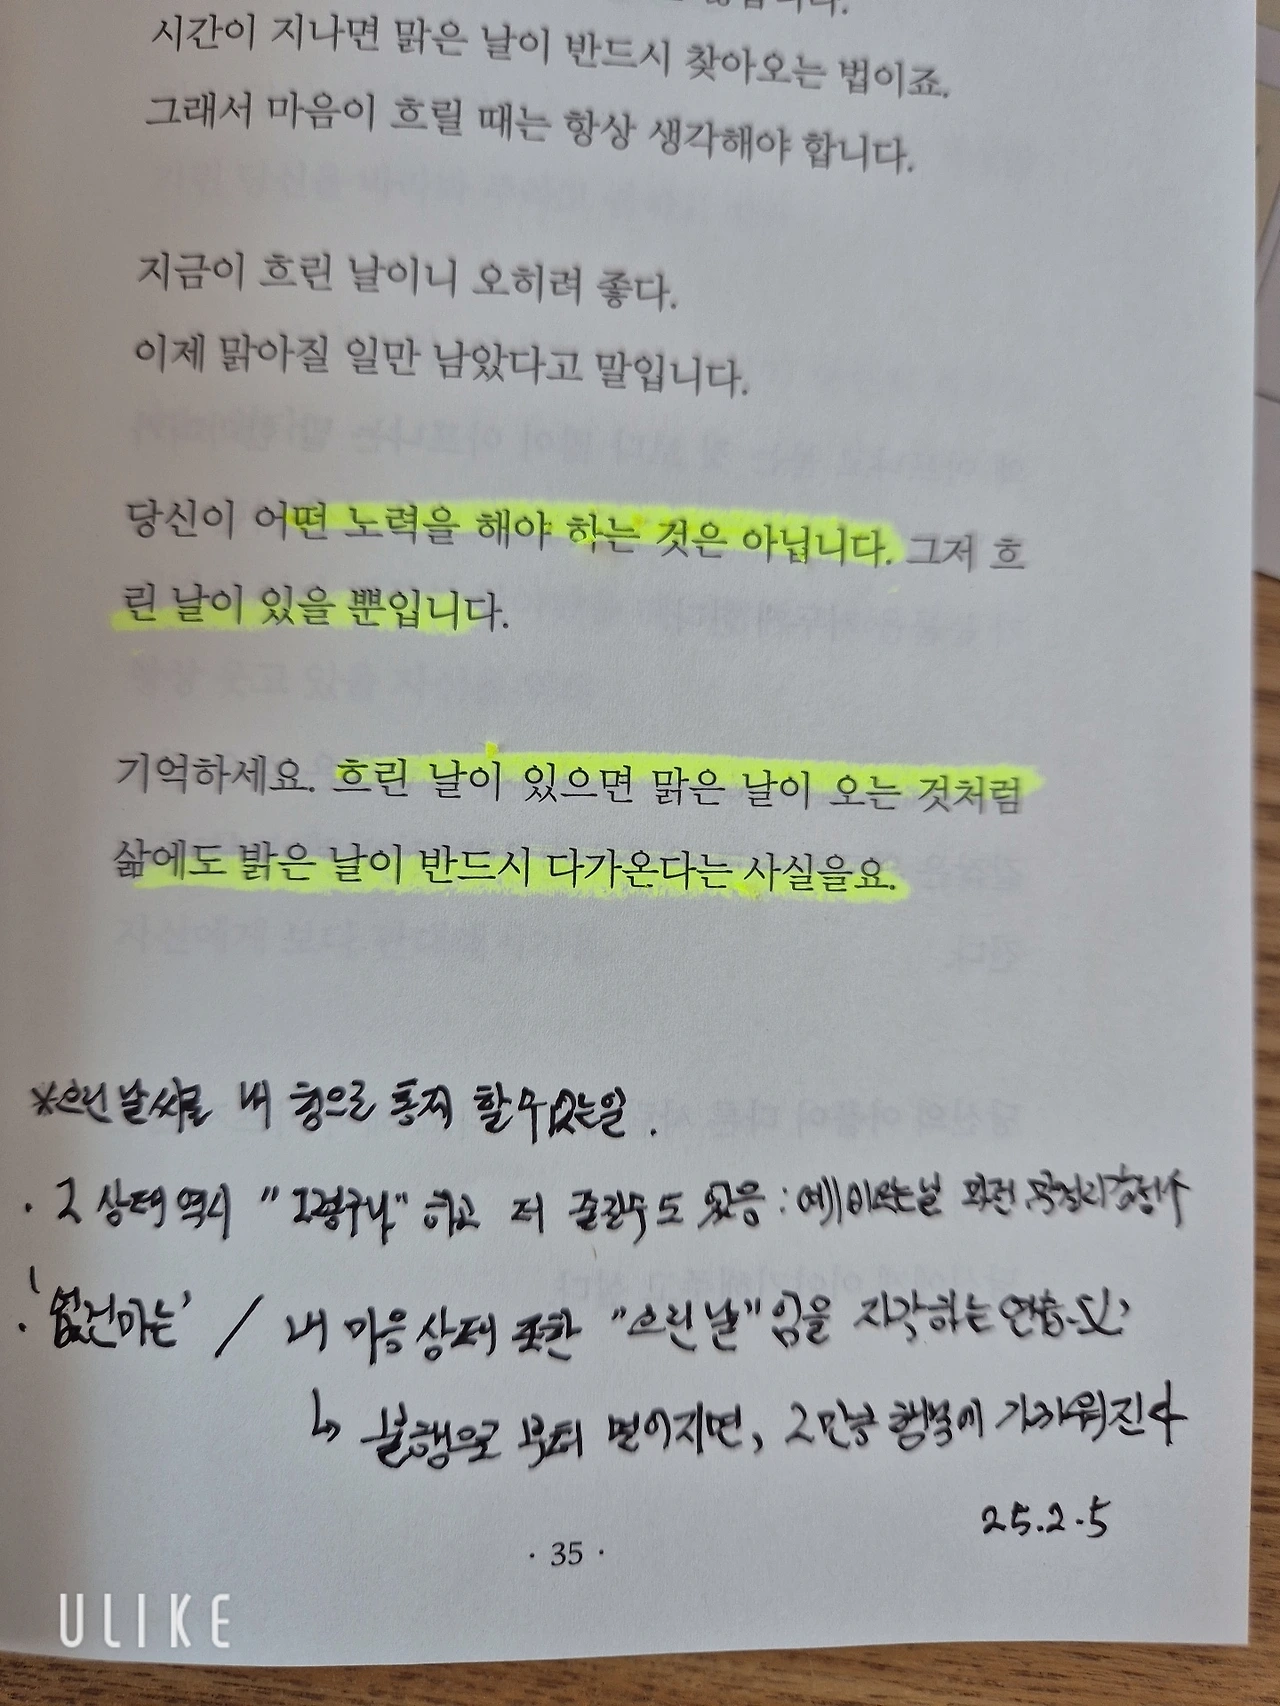 시간이 지나면 맑은 날이 반드시 찾아오는 법이죠.
그래서 마음이 흐릴 때는 항상 생각해야 합니다.
지금이 흐린 날이니 오히려 좋다.
이제 맑아질 일만 남았다고 말입니다.
당신이 어떤 노력을 해야 하는 것은 아닙니다. 그저 흐
린 날이 있을 뿐입니다.
기억하세요. 흐린 날이 있으면 맑은 날이 오는 것처럼
삶에도 밝은 날이 반드시 다가온다는 사실을요.
*흐린 날씨를 내 힘으로 통제 할 수 없는 일.
· 그 상태 역시 "그렇구나" 하고 더 즐길 수 도 있음 : 예) 비오는 날 파전
내 마음 상태 또한 "흐린 날" 임을 자각하는 연습
↳ 불행으로 부터 멀어지면, 그만큼 행복에 가까워진다
25.2.5
· 35 ·
ULIKE